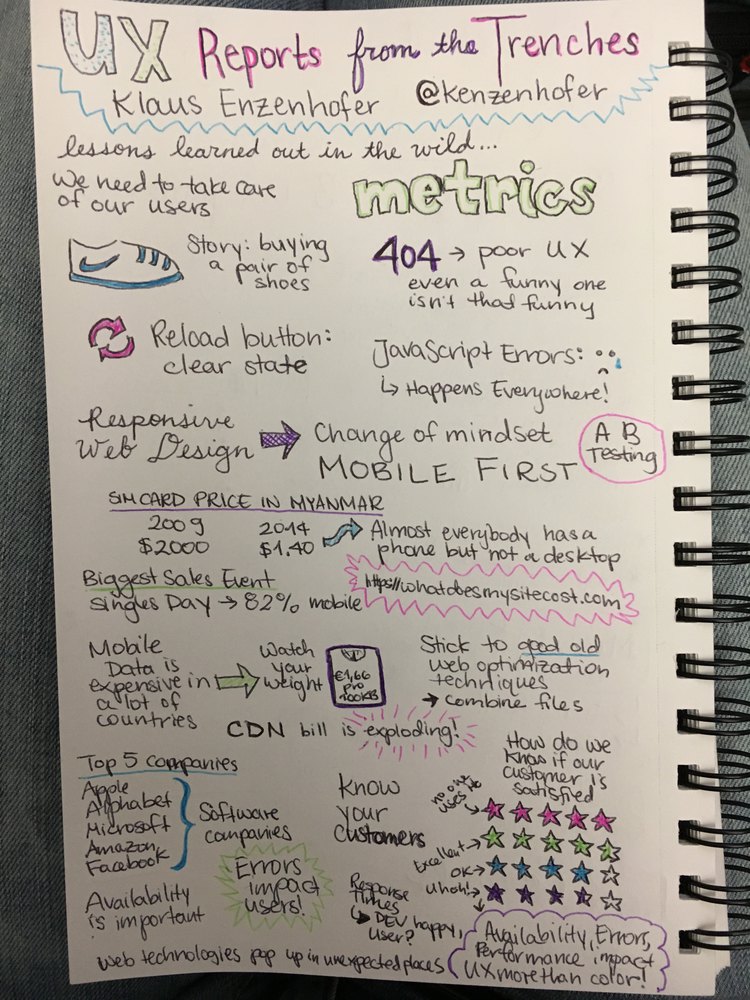 UX Reports from the Trenches
Klaus Enzenhofer @kenzenhofer
lessons learned out in the wild...
we need to take care
of our users
metrics
Story: buying
a pair of
shoes
404 → poor UX
even a funny one
isn't that funny
Reload button:
clear state
JavaScript Errors:
↳ Happens Everywhere!
Responsive
Web Design
Change of mindset
MOBILE FIRST
A B
Testing
SIM CARD PRICE IN MYANMAR
2009 2014
$2000 $1.40
Almost everybody has a
phone but not a desktop
Biggest Sales Event
singles Day → 82% mobile
https://whatdoesmysitecost.com
Mobile
Data is
expensive in
a lot of
countries
Watch
your
weight
€1,66
pro
100KB
Stick to good old
web optimization
techniques
→ combine files
CDN bill is exploding!
Top 5 companies
Apple
Alphabet
Microsoft
Amazon
Facebook
Software
companies
Know
your
customers
How do we
know if our
customer is
satisfied
no one
uses
Excellent →
OK →
uhoh! →
Availability
is important
Errors
impact
users!
Response
Times
↳ DEV happy,
user?
Availability, Errors,
Performance impact
UX more than color!
web technologies pop up in unexpected places